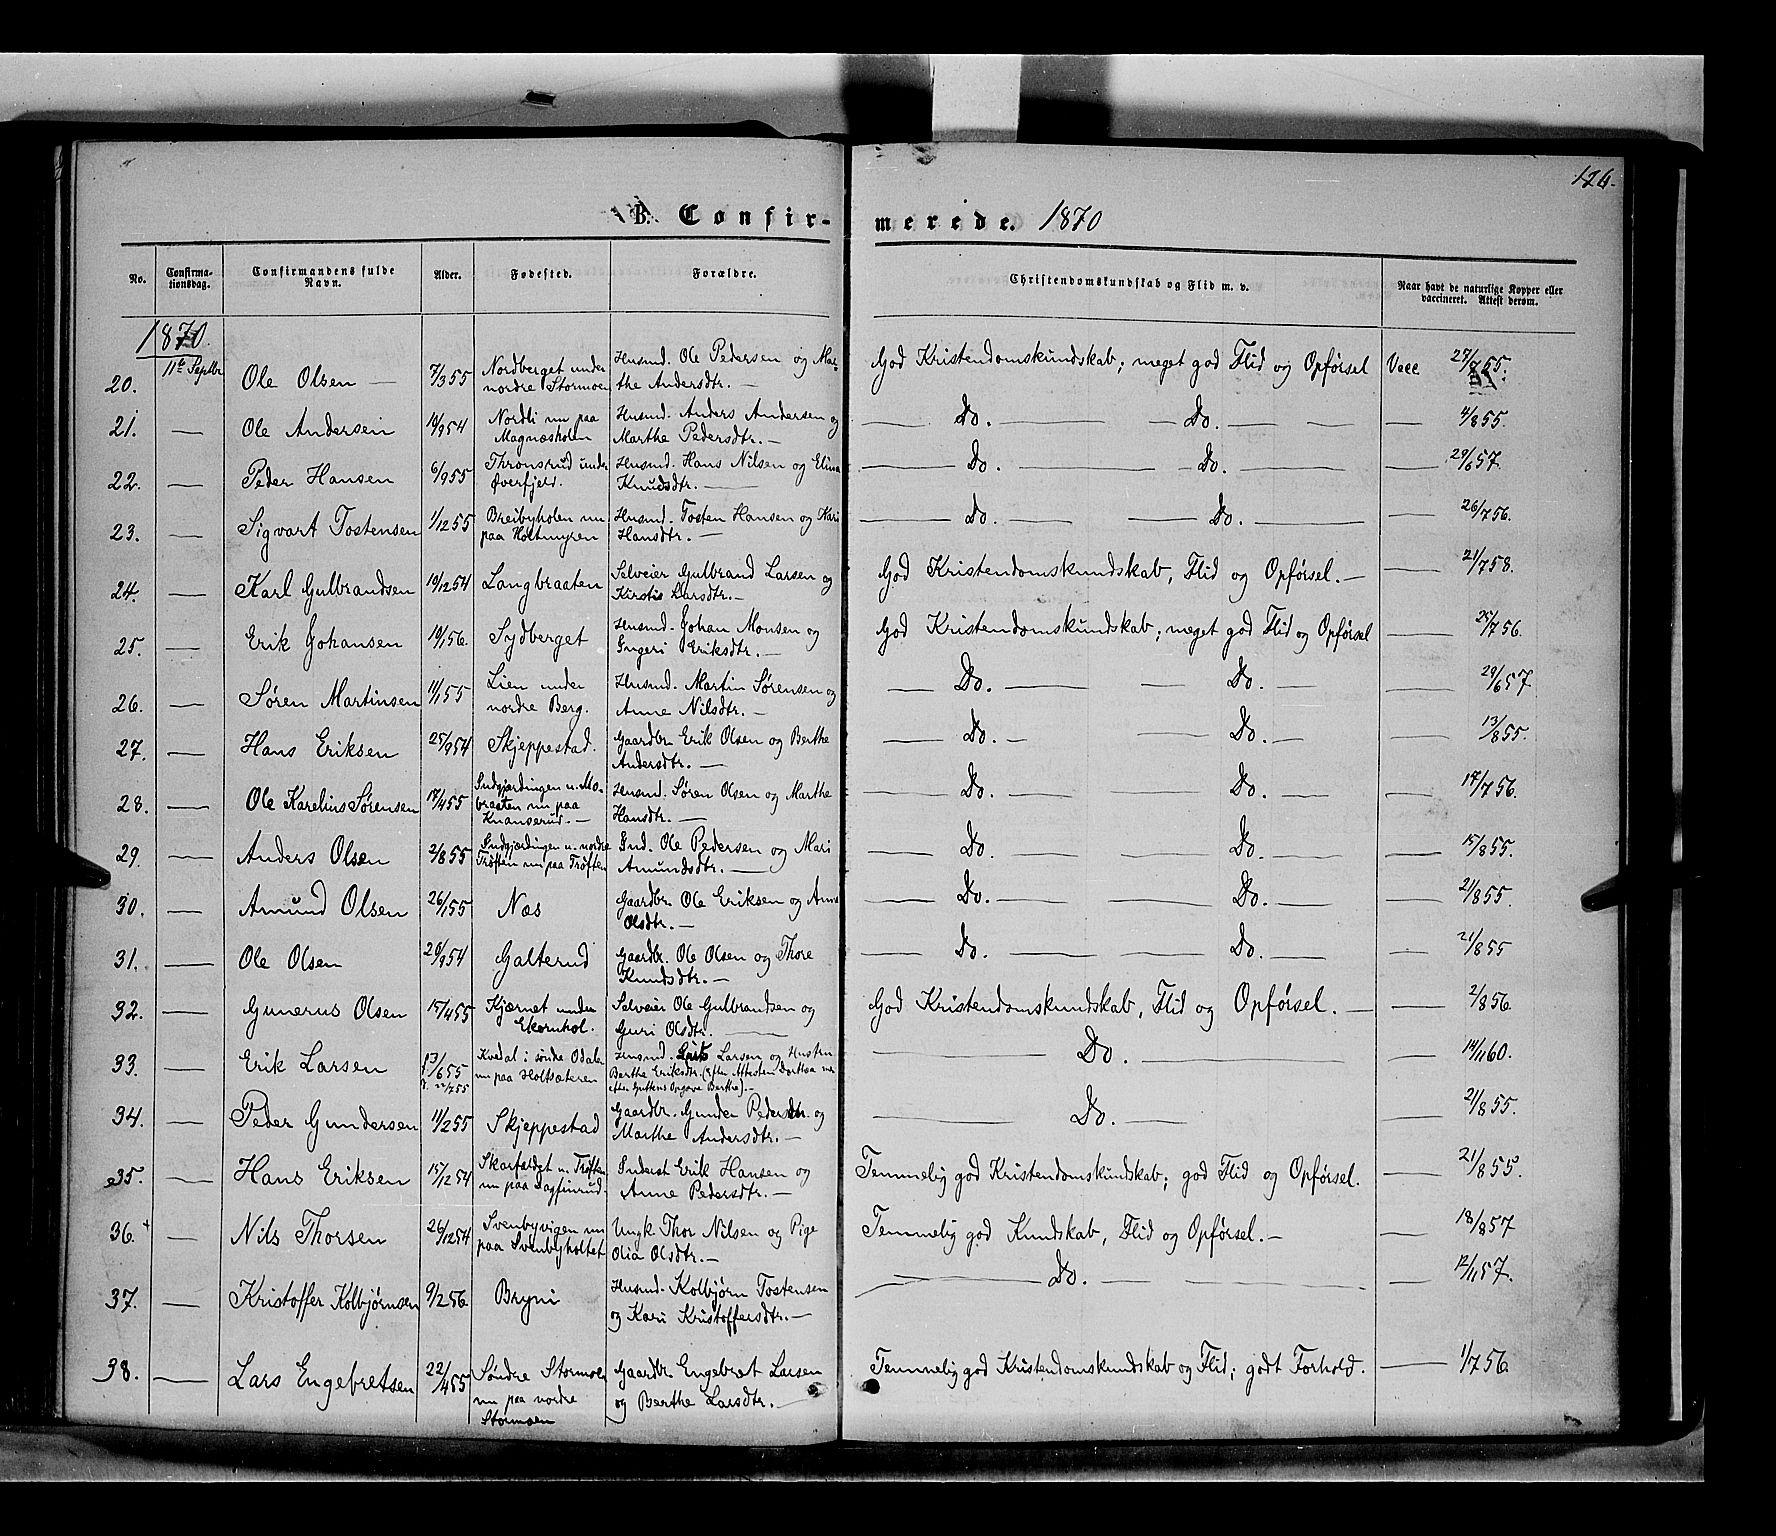 126.
B. Confir-merede. 1870
No. Confirma-tionsdag. Confirmandens fulde Navn. Alder. Fødested. Forældre. Christendomskundskab og Flid m. v. Naar havt de naturlige Kopper eller vaccineret. Attest derom.
1870.
20. 11te Septbr Ole Olsen — 7/3 55 Nordberget under nordre Stormoen Husmd. Ole Pedersen og Marthe Andersdtr. — God Kristendomskundskab; meget god Flid og Opførsel Vacc 27/7 55.
21. — Ole Andersen 19/9 54 Nordli nu paa Magnæsholen Husmd. Anders Andersen og Marthe Pedersdtr. — Do. — Do. — 4/8 55.
22. — Peder Hansen 6/9 55 Thronsrud under Øverfjeld. Husmd. Hans Nilsen og Elina Knudsdtr. — Do. — Do. — 29/6 57.
23. — Sigvart Tostensen 1/12 55 Breibyholen nu paa Holtmyren Husmd. Tosten Hansen og Kari Hansdtr. — Do. — Do. — 26/7 56.
24. — Karl Gulbrandsen 19/12 54 Langbraaten Selveier Gulbrand Larsen og Kirstie Larsdtr. — God Kristendomskundskab, Flid og Opførsel. — 21/7 58.
25. — Erik Johansen 19/1 56. Sydberget Husmd. Johan Monsen og Ingeri Eriksdtr. — God Kristendomskundskab; meget god Flid og Opførsel — 25/7 56.
26. — Søren Martinsen 11/1 55 Lien under nordre Berg. Husmd. Martin Sørensen og Anne Nilsdtr. — Do. — Do. — 29/6 57
27. — Hans Eriksen 25/9 54 Skjeppestad. Gaardbr Erik Olsen og Berthe Andersdtr. — Do. — Do. — 13/8 55.
28. — Ole Karelius Sørensen 17/4 55 Indgjærdingen u. Mobraaten nu paa Knanserud. — Husmd. Søren Olsen og Marthe Hansdtr. — Do. — Do. — 17/7 56.
29. — Anders Olsen 2/8 55 Indgjærdingen u. nordre Trøften nu paa Trøften Ind. Ole Pedersen og Mari Amundsdtr. — Do. — Do. — 15/8 55.
30. — Amund Olsen 26/1 55 Næs Gaardbr Ole Eriksen og Anne Olsdtr. — Do. — Do. — 21/8 55.
31. — Ole Olsen 29/9 54 Galterud Gaardbr. Ole Olsen og Thore Knudsdtr. — Do. — Do. — 21/8 55
32. — Gunerus Olsen 15/4 55 Kjærnet under Ekornhol. Selveier Ole Gulbrandsen og Guri Olsdtr. — God Kristendomskundskab, Flid og Opførsel. — 2/8 56.
33. — Erik Larsen f 13/6 55 22/7 55 Kvedal i søndre Odalen nu paa Holtsæteren Husmd. Lars Larsen og Hustru Berthe Eriksdtr. (efter Attesten Dorthea men efter Guttens Opgave Berthe). — Do. — 14/11 60.
34. — Peder Gundersen 11/2 55 Skjeppestad Gaardbr. Gunder Pedersen og Marthe Andersdtr. — Do. — 21/8 55.
35. — Hans Eriksen 15/12 54 Skarfaldet u. Trøften nu paa Dagfinrud. Inderst Erik Hansen og Anne Pedersdtr. — Temmelig god Kristendomskundskab; god Flid og Opførsel. — 21/8 55.
36. — Nils Thorsen 26/12 54 Svenbyvigen nu paa Svenbyholtet Ungk Thor Nilsen og Pige Olia Olsdtr. — Temmelig god Kundskab, Flid og Opførsel. — 18/8 57
37. — Kristoffer Kolbjørnsen 9/2 56. Bryni Husmd. Kolbjørn Tostensen og Kari Kristoffersdtr. — Do. — 12/11 57.
38. — Lars Engebretsen 22/4 55 Søndre Stormoen nu paa nordre Stormoen Gaardbr Engebret Larsen og Berthe Larsdtr. — Temmelig god Kristendomskundskab og Flid; godt Forhold. — 1/7 56.